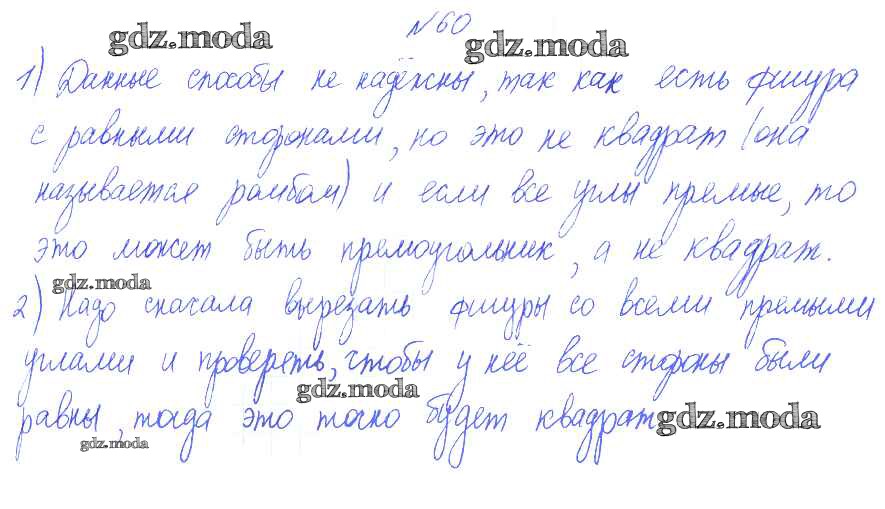 №60
gdz.moda gdz.moda
1) Данные способы не надёжны, так как есть фигура
с равными сторонами, но это не квадрат (она
называется ромбом) и если все углы прямые, то
это может быть прямоугольник, а не квадрат.
gdz.moda
2) Надо сначала вырезать фигуры со всеми прямыми
углами и проверять, чтобы у неё все стороны были
gdz.moda
равны, тогда это точно будет квадрат
gdz.moda
gdz.moda